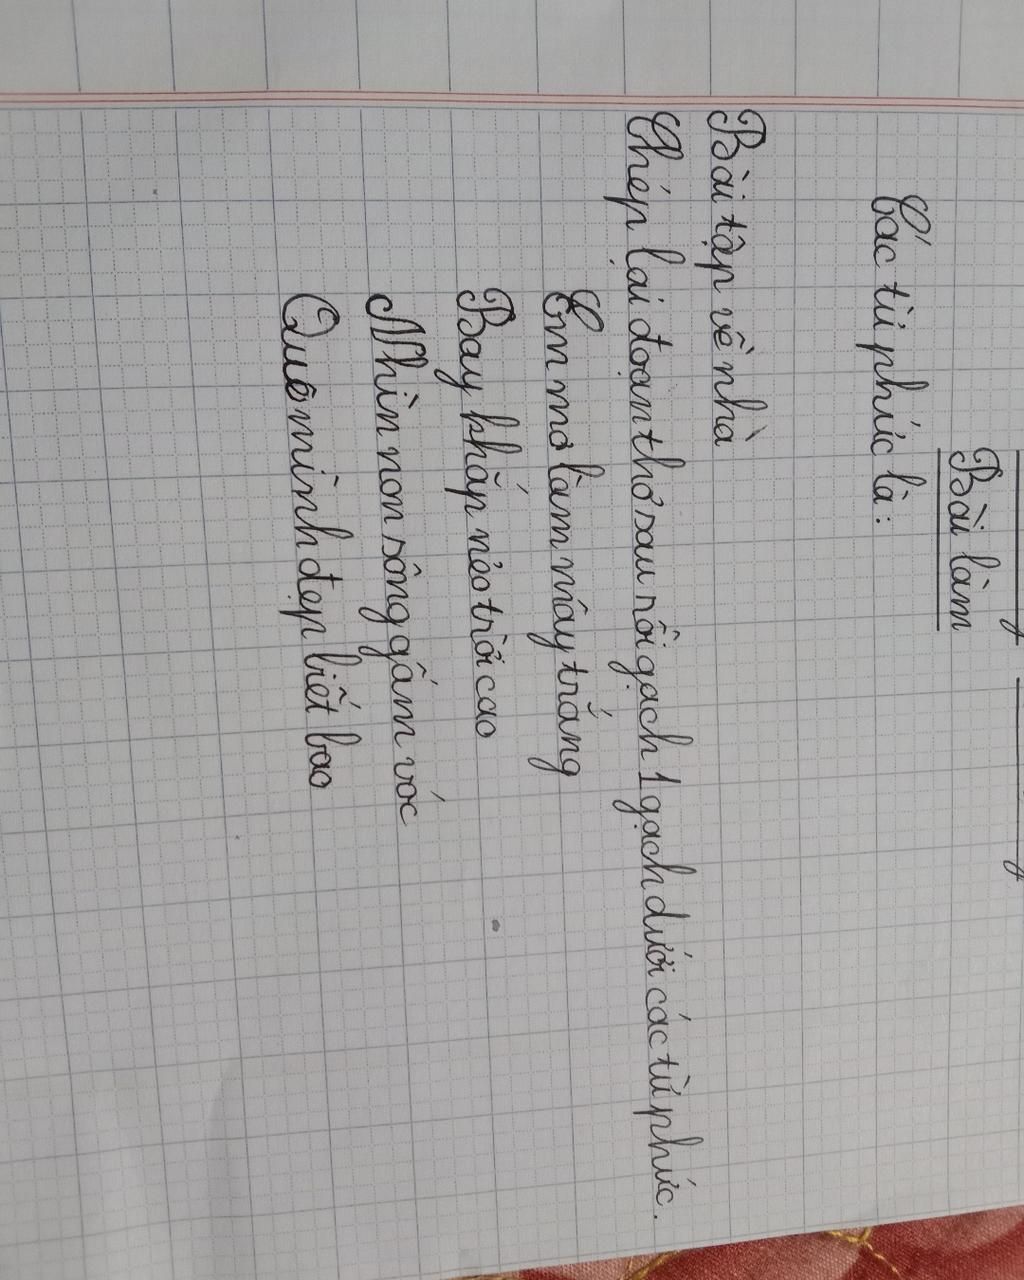 Bài làm
Các từ phức là:
Bài tập về nhà
Chép lại đoạn thơ sau rồi gạch 1 gạch dưới các từ phức.
Em mơ làm mây trắng
Bay khắp nẻo trời cao
Nhìn non sông gấm vóc
Quê mình đẹp biết bao